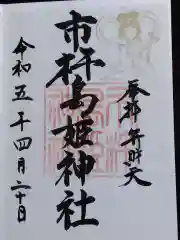 弁財天
市杵島姫神社
令和五年四月二十日